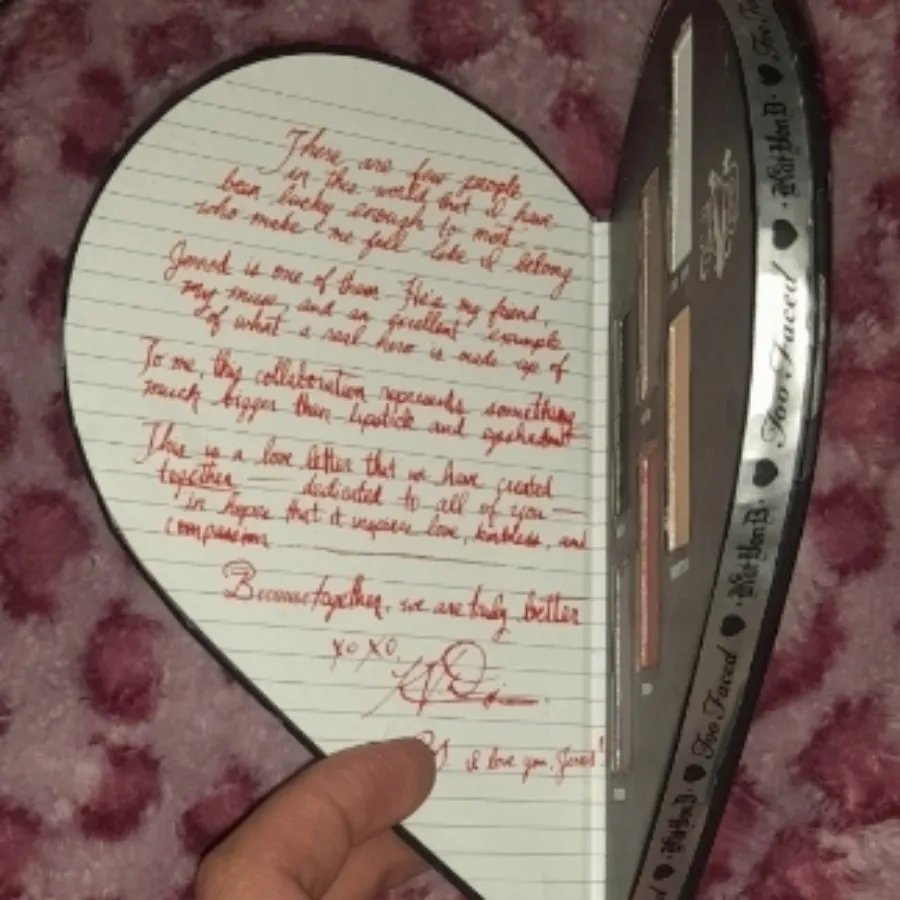 There are few people
in this world but I have
been lucky enough to meet
who make me feel like I belong
Jerrod is one of them. He's my friend,
my muse, and an excellent example
of what a real hero is made up of
To me, this collaboration represents something
much bigger than lipstick and eyeshadow
This is a love letter that we have created
together — dedicated to all of you —
in hopes that it inspires love, kindness, and
compassion
Because together, we are truly better
xoxo,
KVD
PS I love you, Jerrod!
Too Faced
Kat Von D
Too Faced
Kat Von D
Too Faced
Kat Von D